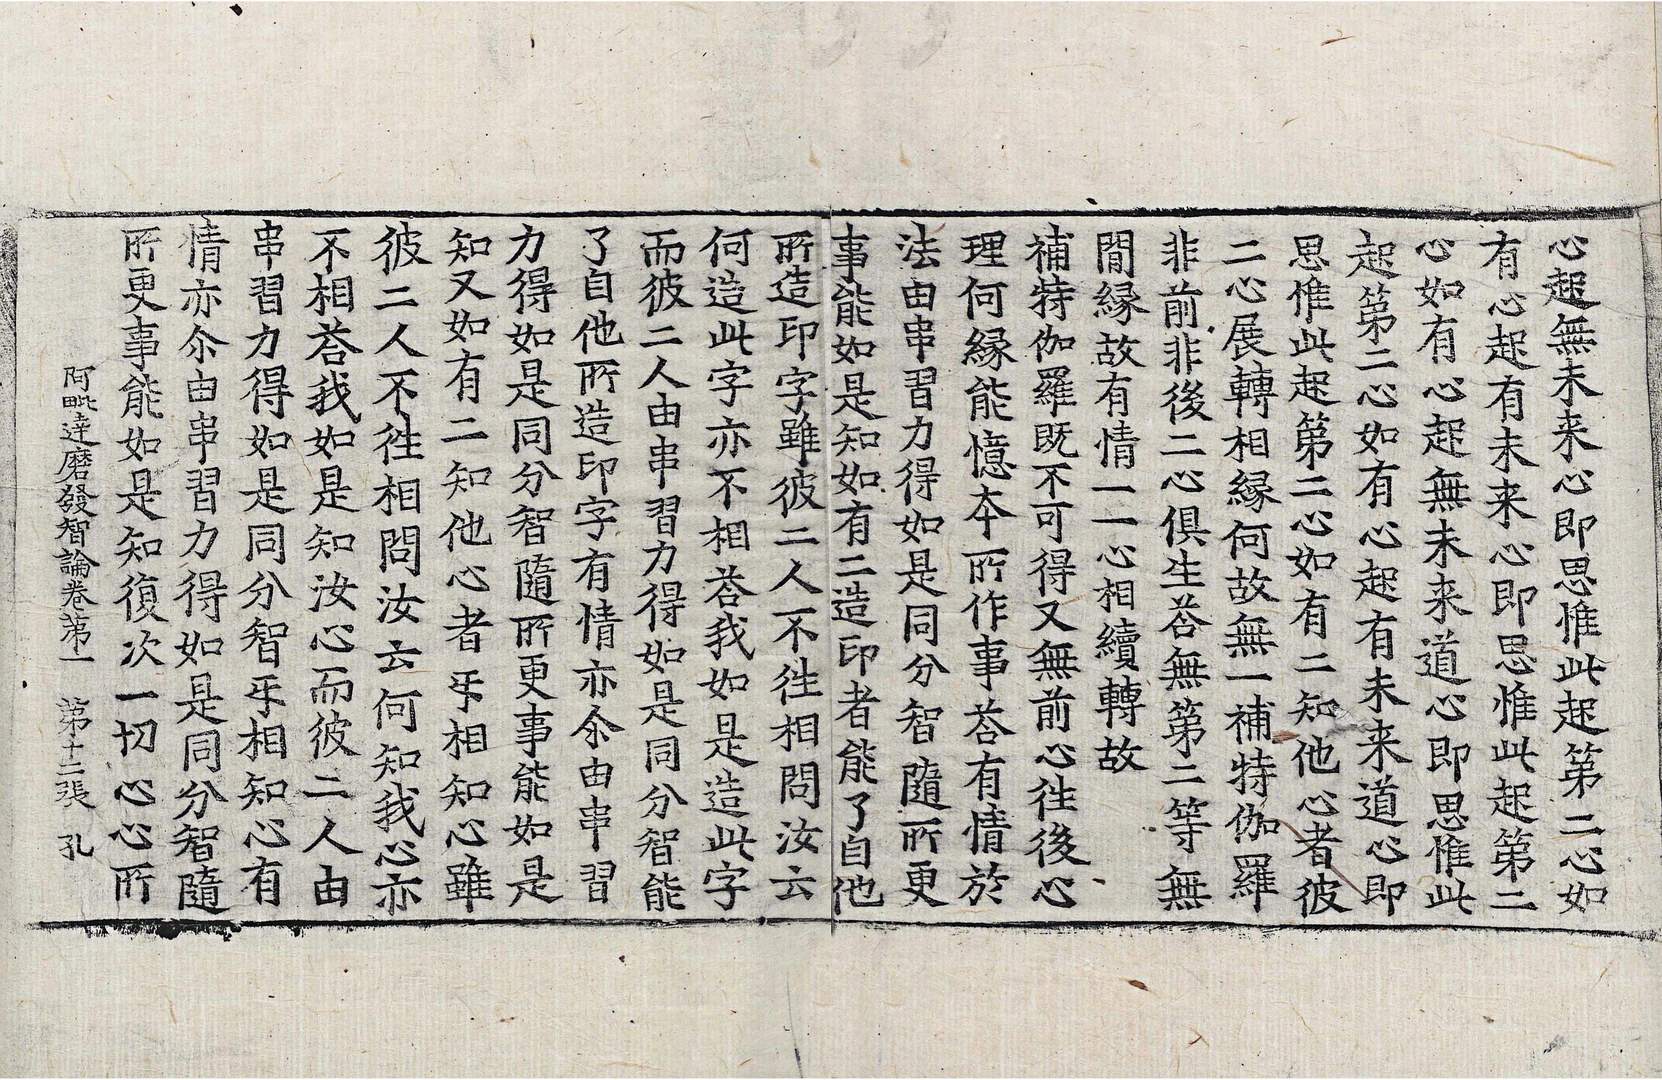 心起無未来心即思惟此起第二心如
有心起有未来心即思惟此起第二
心如有心起無未来道心即思惟此
起第二心如有心起有未来道心即
思惟此起第二心如有二知他心者彼
二心展轉相縁何故無一補特伽羅
非前非後二心俱生荅無第二等無
閒縁故有情一一心相續轉故
補特伽羅既不可得又無前心徃後心
理何縁能憶本所作事荅有情於
法由串習力得如是同分智隨所更
事能如是知如有二造印者能了自他
所造印字雖彼二人不徃相問汝云
何造此字亦不相荅我如是造此字
而彼二人由串習力得如是同分智能
了自他所造印字有情亦尒由串習
力得如是同分智隨所更事能如是
知又如有二知他心者㸦相知心雖
彼二人不徃相問汝云何知我心亦
不相荅我如是知汝心而彼二人由
串習力得如是同分智㸦相知心有
情亦尒由串習力得如是同分智隨
所更事能如是知復次一切心心所
阿毗達磨發智論卷第一　第十二張　孔